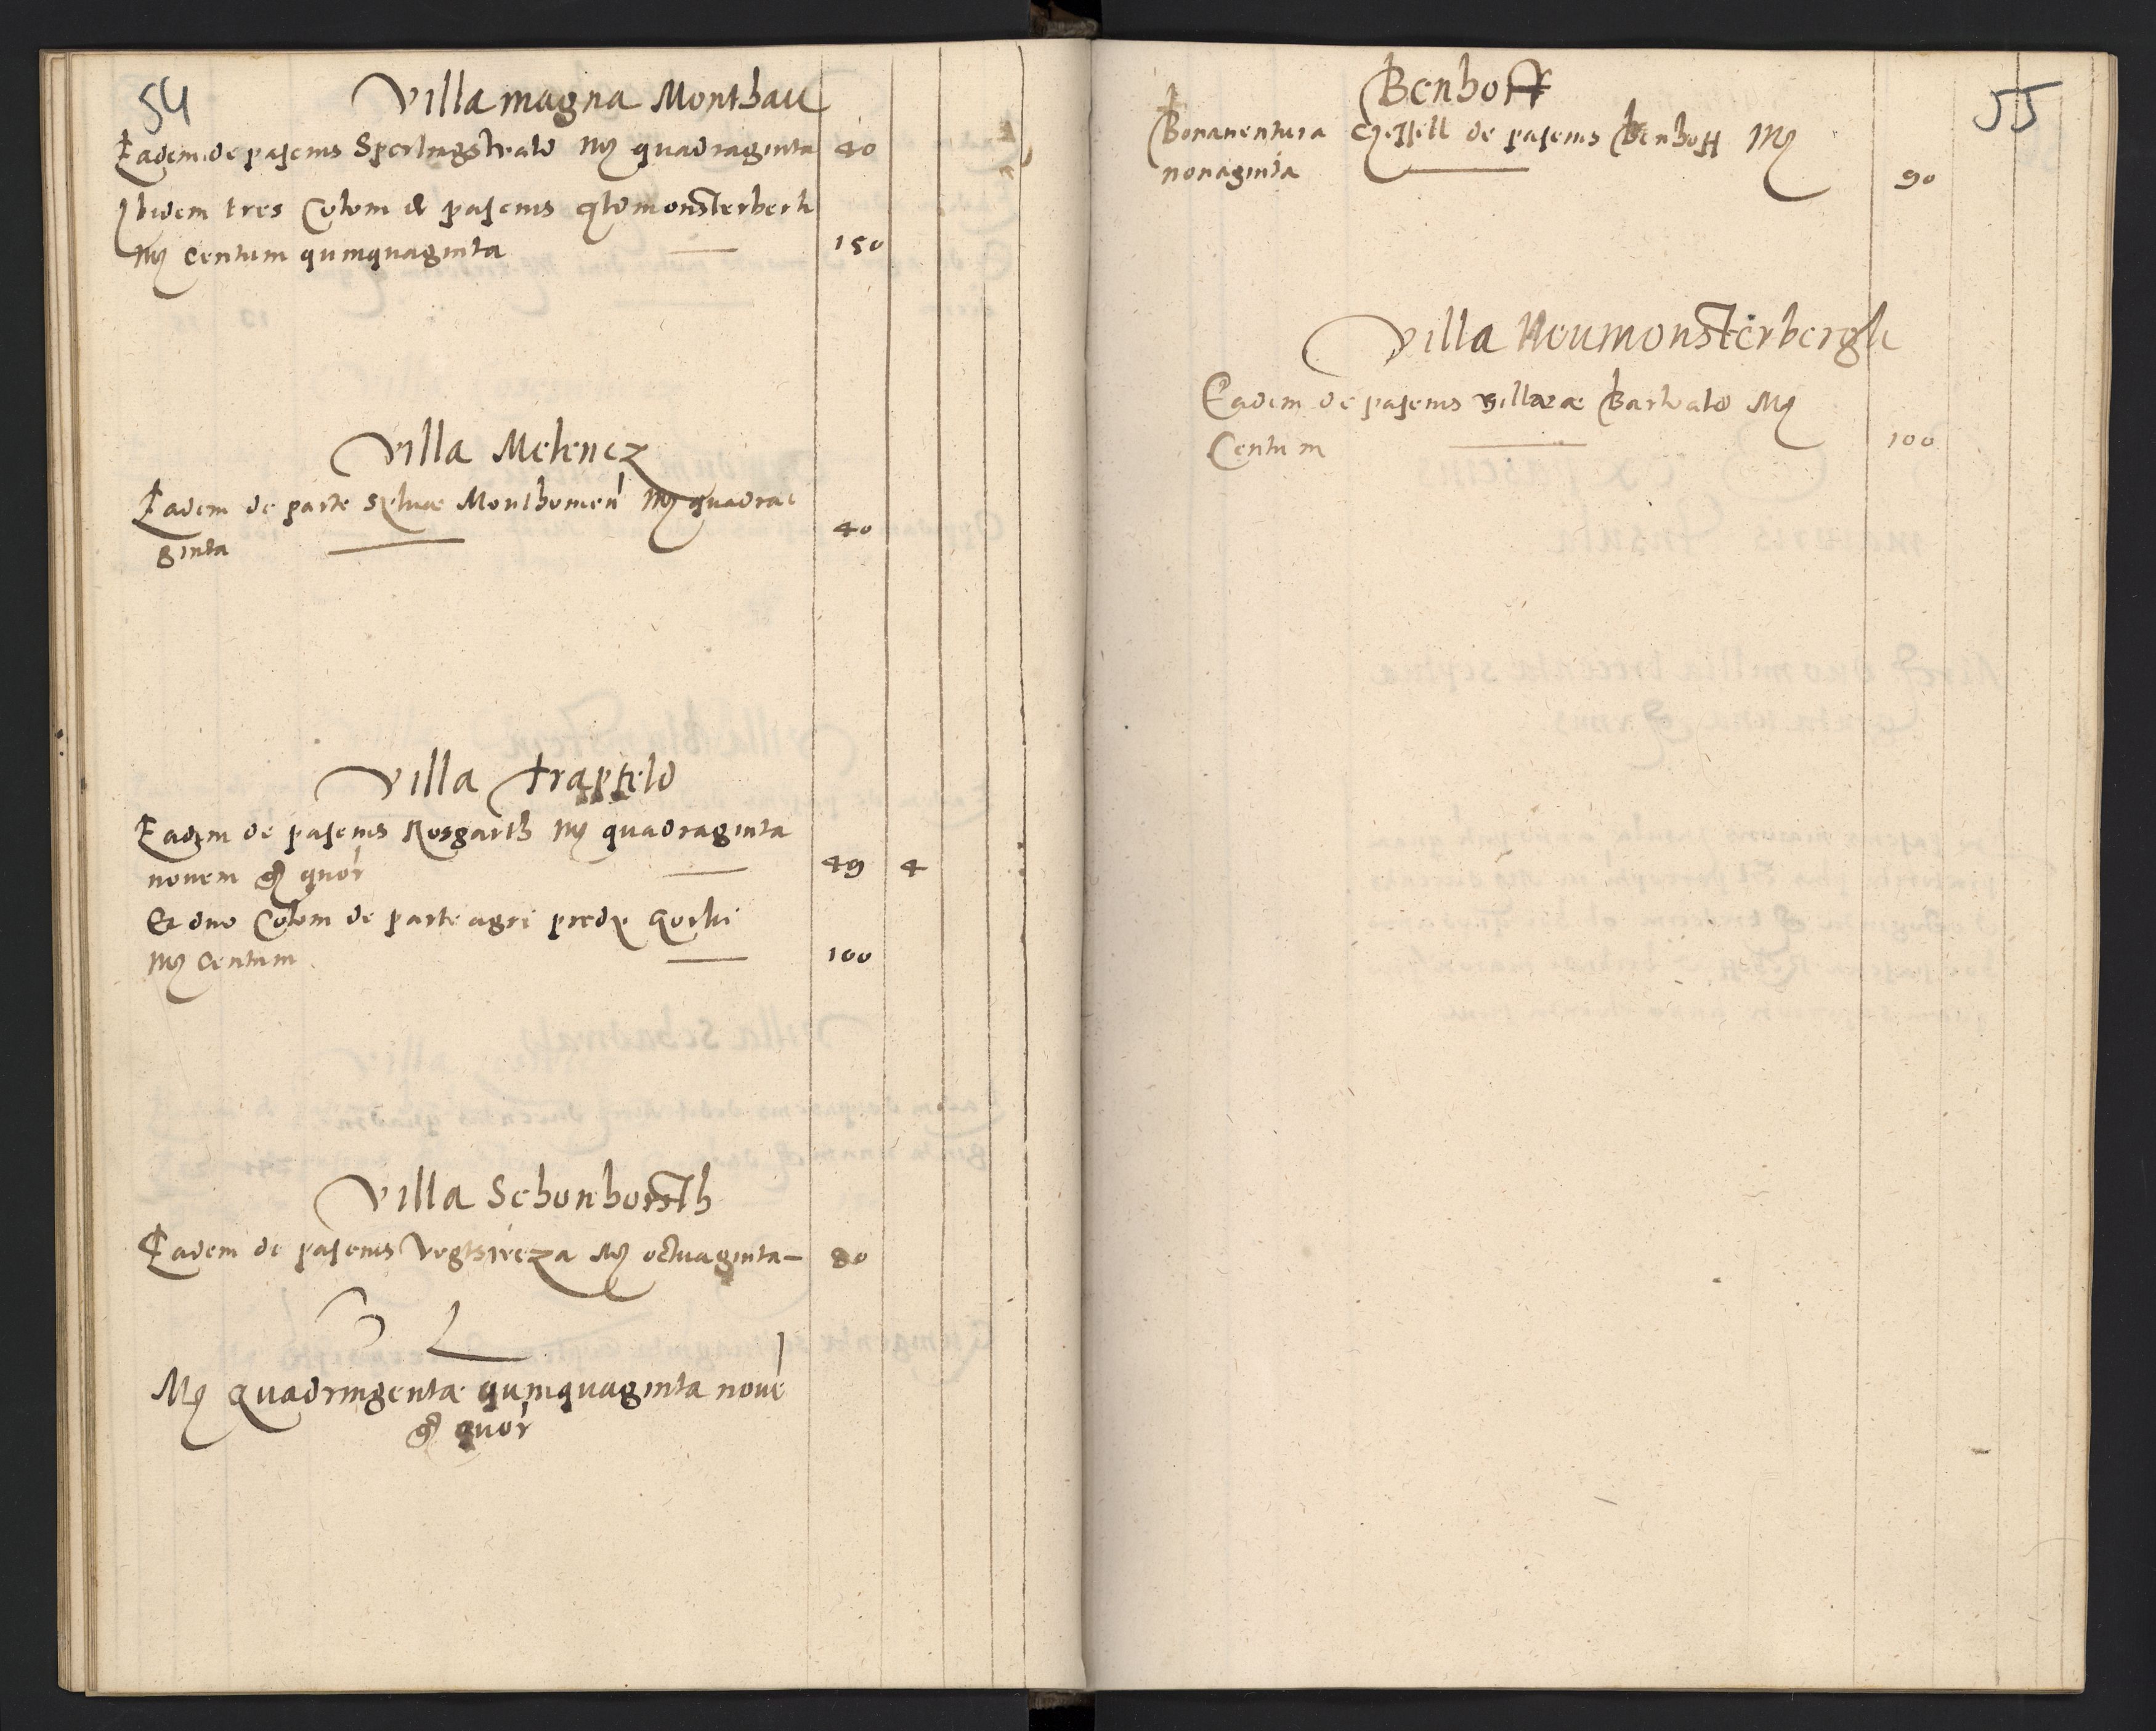 54
Villa magna Monthau
Eadem de pascuis Sperlingswald Mρ quadraginta 40
Ibidem tres Coloni de pascuis Altmonsterberk
Mρ Centum quinquaginta 150
Villa Melencz
Eadem de parte Sylvae Monthomen Mρ quadra
ginta 40
Villa Trapfeld
Eadem de pascuis Rosgarth Mρ quadraginta
novem gρ quor 49 4
Et duo Coloni de parte agri Gorki
Mρ Centum 100
Villa Schonhorsth
Eadem de pascuis Vogtsweza Mρ octuaginta 80
Mρ Quadringentae quinquaginta nove
gρ quor
55
Benhoff
Bonaventura de pascuis Benhoff Mρ
nonaginta 90
Villa Neumonsterbergk
Eadem de pascuis Barwald Mρ
Centum 100